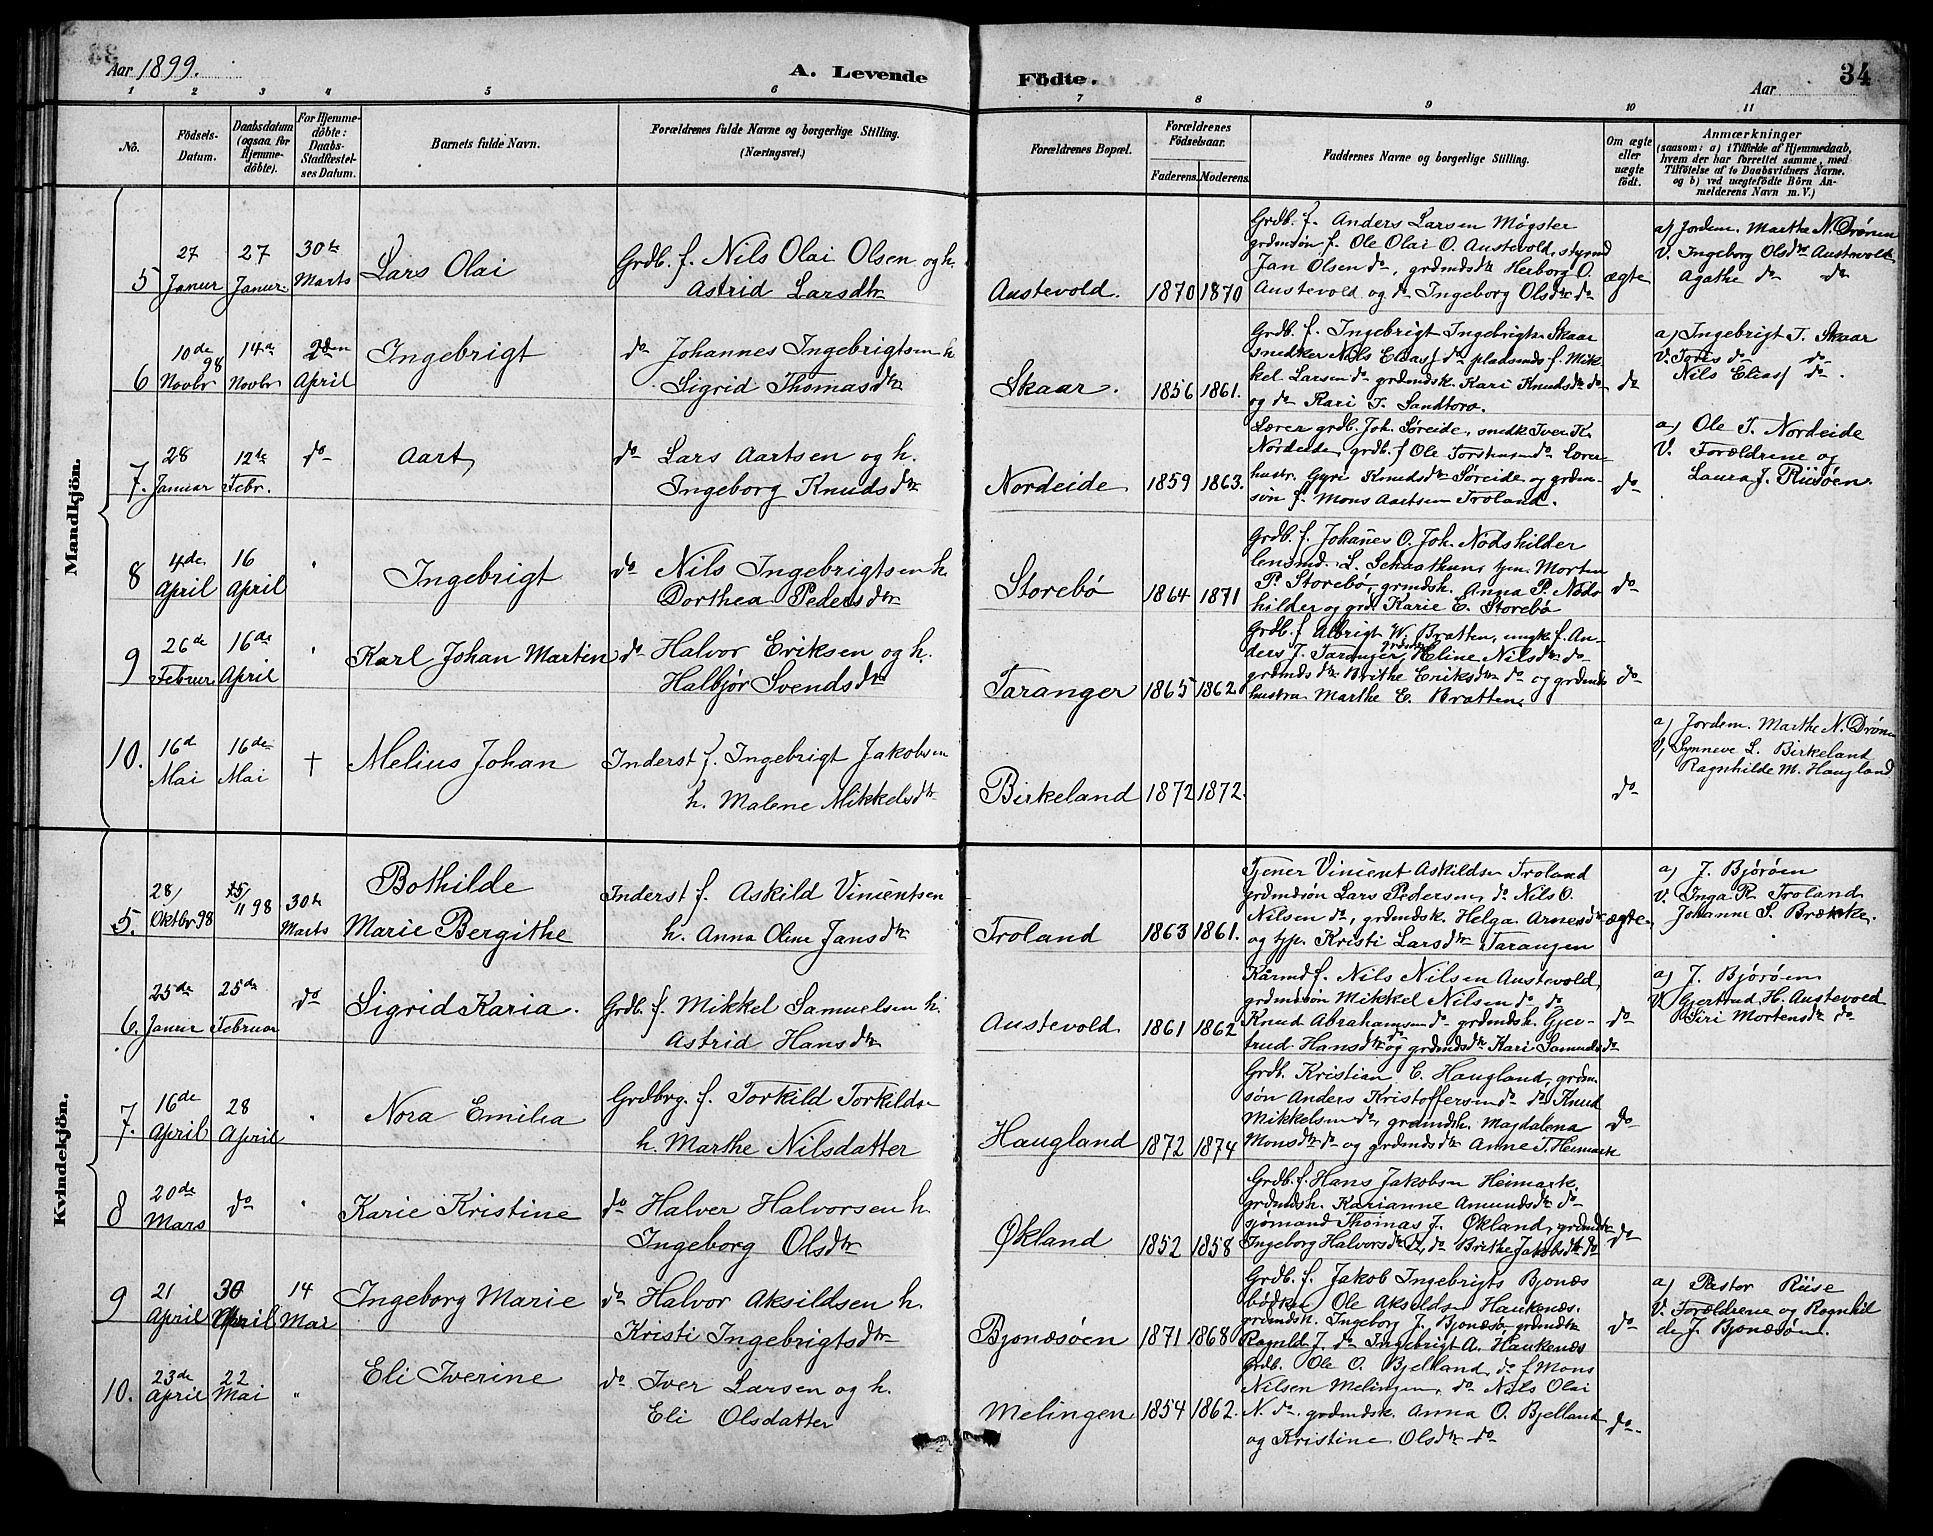 Aar 1899.
A. Levende Födte.
Aar
34
1 2 3 4 5 6 7 8 9 10 11
No.
Födsels-Datum.
Daabsdatum (ogsaa for Hjemme-döbte).
For Hjemme-döbte: Daabs-Stadfæstel-ses Datum.
Barnets fulde Navn.
Forældrenes fulde Navne og borgerlige Stilling.
(Næringsvei.)
Forældrenes Bopæl.
Forældrenes Födselsaar.
Faderens. Moderens.
Faddernes Navne og borgerlige Stilling.
Om ægte eller uægte födt.
Anmærkninger
(saasom: a) i Tilfælde af Hjemmedaab, hvem der har forrettet samme, med Tilföielse af to Daabsvidners Navne. og b) ved uægtefödte Börn An-melderens Navn m. V.)
Mandkjön.
5 27 Janur 27 Janur. 30te Marts
Lars Olai
Grdb. f. Nils Olai Olsen og h.
Astrid Larsdtr
Austevold. 1870 1870
Grdb. f. Anders Larsen Møgster
grdmdsøn f. Ole Olai O. Austevold, styrmd
Jan Olsen do, grdmdsdtr Herborg O.
Austevold og do Ingeborg Olsdtr do
ægte
a) Jordem. Marthe N. Drønen
V. Ingeborg Olsdtr Austevold
Agathe do do
6 10de Novbr 98 14de Novbr 2den April
Ingebrigt
do Johannes Ingebrigtsen h
Sigrid Thomasdtr
Skaar. 1856 1861.
Grdb. f. Ingebrigt Ingebrigts. Skaar
snedker Nils Eliasf do pladsmds f. Mik-
kel Larsen do grdmdsk. Kari Knudsdtr do
og do Kari T. Sandtorv.
do
a) Ingebrigt T. Skaar
V. Tores do do
Nils Eliasf do.
7. 28 Januar 12te Febr. do
Aart
do Lars Aartsen og h.
Ingeborg Knudsdtr
Nordeide 1859 1863.
Lærer grdb. Joh. Søreide, snedk. Iver K.
Nordeide, grdb. f Ole Torstensen do Lærer
hustr. Gyri Knudsdtr Søreide og grdm-
søn f. Mons Aartsen Troland.
do
a) Ole T. Nordeide
V. Forældrene og
Laura J. Riisøen.
8 4de April 16 April "
Ingebrigt
do Nils Ingebrigtsen h.
Dorthea Pedersdtr
Storebø 1864 1871
Grdb. f. Johanes O. Joh. Nodshilder
lensmd. L. Schaathun, tjen. Morten
P. Storebø, grmdsk. Anna P. Nods
hilder og grd. Karie E. Storebø
do
9 26de Februar 16de April "
Karl Johan Martin
do Halvor Eriksen og h.
Halbjør Svendsdtr
Taranger 1865 1862
Grdb. f Albrigt W. Bratten, ungk. f. An-
ders J. Taranger, Heline Nilsdtr do
grdmdsdtr Brithe Eriksdtr do og grdmds
hustru Marthe E. Bratten.
do
10. 16d Mai 16de Mai †
Melius Johan
Inderst f. Ingebrigt Jakobsen
h. Malene Mikkelsdtr
Birkeland 1872 1872.
do
a) Jordem. Marthe N. Drønen
V, Synneve L. Birkeland
Ragnhilde M. Haugland
Kvindekjön.
5. 28/ Oktbr 98 15/11 98 30te Marts
Bothilde
Marie Bergithe
Inderst f. Askild Vincentsen
h. Anna Oline Jansdtr
Troland 1863 1861.
Tjener Vincent Askildsen Troland
grdmdsøn Lars Pedersen do Nils O.
Nilsen do, grdmdsk. Helga Arnesdtr
og tjp. Kristi Larsdtr Tarangen
ægte
a) J. Bjørøen
V. Inga R. Troland
Johanne S. Brække.
6. 25de Januar 25de Februar do
Sigrid Karia.
Grdb. f. Mikkel Samuelsen h.
Astrid Hansdtr
Austevold 1861 1862
Kårmd f. Nils Nilsen Austevold,
grdmdsøn Mikkel Nilsen do, do
Knud Abrahamsen do grdmdsk. Gjer-
trud Hansdtr do og grdmdsdtr Kari Samuelsd do
do
a) J. Bjørøen
V. Gjertrud H. Austevold
Siri Mortensdtr do
7. 16de April 28 April "
Nora Emilia
Grdbrg. f. Torkild Torkilds.
h. Marthe Nilsdatter
Haugland 1872 1874
Grdb. Kristian E. Haugland, grdm-
søn Anders Kristoffersen do do Knud
Mikkelsen do, grdmdsk. Magdalena
Monsdtr do og grdmdsdtr Anne T. Heimark
do
8 20de Mars do "
Karie Kristine
do Halver Halvorsen h.
Ingeborg Olsdtr
Økland 1852 1858
Grdb. f. Hans Jakobsen Heimark,
grdmdsk. Karianne Amundsdtr do
sjømand Thomas J. Økland, grdmdtr
Ingeborg Halvorsdtr do, do Brithe Jakobsdtr do
do
9 21 April 30 April 14 Mai
Ingeborg Marie
do Halvor Aksildsen h.
Kristi Ingebrigtsdtr
Bjonæsøen 1871 1868
Grdb. f. Jakob Ingebrigts Bjonæs
bødker Ole Aksilds. Haukenæs.
grdmdsk. Ingeborg J. Bjonæsø grdmdtr
Ragnld. J. do Ingebrigt A. Haukenæs
do
a) Pastor Riise
V. Forældrene og Ragnhil
de J. Bjonæsøen.
10. 23de April 22 Mai "
Eli Iverine
do Iver Larsen og h.
Eli Olsdatter
Melingen 1854 1862.
Grdb. Ole O. Bjelland, do f. Mons
Nilsen Melingen, do Nils Olai
N. do. grdmdsk. Anna O. Bjelland
og Kristine Olsdtr do
do